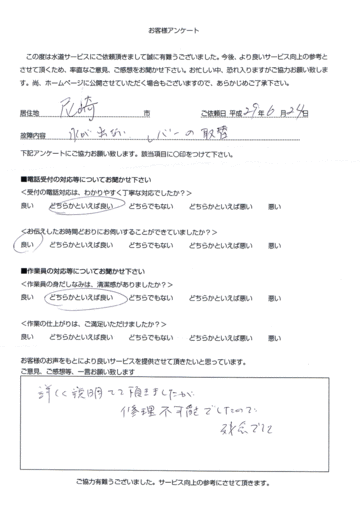 お客様アンケート
この度は水道サービスにご依頼頂きまして誠に有難うございました。今後、より良いサービス向上の参考と
させて頂くため、率直なご意見、ご感想をお聞かせ下さい。お忙しい中、恐れ入りますがご協力お願い致しま
す。尚、ホームページに公開させていただく場合もございますので、あらかじめご了承下さい。
居住地 尼崎 市 ご依頼日 平成 29年 6月 24日
故障内容 水が出ない レバーの取替
下記アンケートにご協力お願い致します。該当項目に〇印をつけて下さい。
■電話受付の対応等についてお聞かせ下さい
＜受付の電話対応は、わかりやすく丁寧な対応でしたか？＞
良い どちらかといえば良い どちらでもない どちらかといえば悪い 悪い
＜お伝えしたお時間どおりにお伺いすることができていましたか？＞
良い どちらかといえば良い どちらでもない どちらかといえば悪い 悪い
■作業員の対応等についてお聞かせ下さい
＜作業員の身だしなみは、清潔感がありましたか？＞
良い どちらかといえば良い どちらでもない どちらかといえば悪い 悪い
＜作業の仕上がりは、ご満足いただけましたか？＞
良い どちらかといえば良い どちらでもない どちらかといえば悪い 悪い
お客様のお声をもとにより良いサービスを提供させて頂きたいと思っています。
ご意見、ご感想等、一言お願い致します
詳しく説明して頂きましたが
修理不可能でしたので
残念でした
ご協力有難うございました。サービス向上の参考にさせて頂きます。